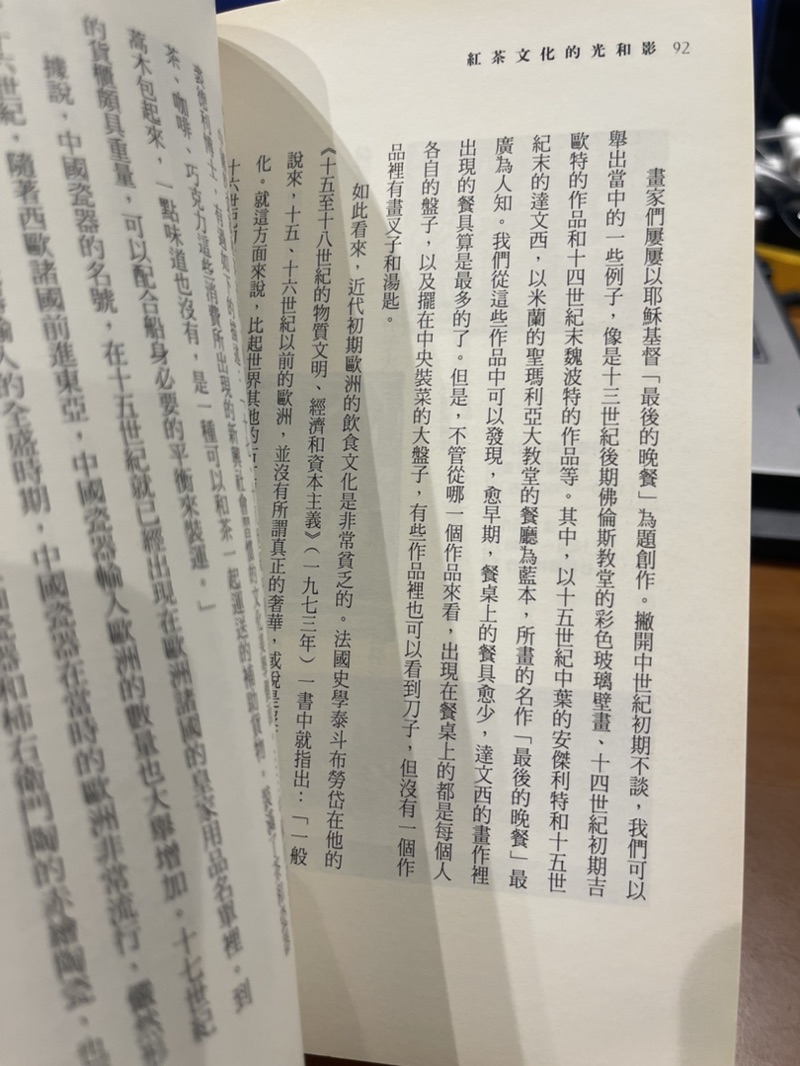 紅茶文化的光和影 92
畫家們屢屢以耶穌基督「最後的晚餐」為題創作。撇開中世紀初期不談，我們可以
舉出當中的一些例子，像是十三世紀後期佛倫斯教堂的彩色玻璃壁畫、十四世紀初期吉
歐特的作品和十四世紀末魏波特的作品等。其中，以十五世紀中葉的安傑利特和十五世
紀末的達文西，以米蘭的聖瑪利亞大教堂的餐廳為藍本，所畫的名作「最後的晚餐」最
廣為人知。我們從這些作品中可以發現，愈早期，餐桌上的餐具愈少，達文西的畫作裡
出現的餐具算是最多的了。但是，不管從哪一個作品來看，出現在餐桌上的都是每個人
各自的盤子，以及擺在中央裝菜的大盤子，有些作品裡也可以看到刀子，但沒有一個作
品裡有畫叉子和湯匙。
如此看來，近代初期歐洲的飲食文化是非常貧乏的。法國史學泰斗布勞岱在他的
《十五至十八世紀的物質文明、經濟和資本主義》（一九七三年）一書中就指出：「一般
說來，十五、十六世紀以前的歐洲，並沒有所謂真正的奢華，或說是
化。就這方面來說，比起世界其他的
十六世紀
茶、咖啡、巧克力這些消費所出現的新興社會習慣的文化
萵木包起來，一點味道也沒有，是一種可以和茶一起運送的補助貨物，
的貨櫃頗具重量，可以配合船身必要的平衡來裝運。」
據說，中國瓷器的名號，在十五世紀就已經出現在歐洲諸國的皇家用品名單裡。到
十六世紀，隨著西歐諸國前進東亞，中國瓷器輸入歐洲的數量也大舉增加。十七世紀
輸入的全盛時期，中國瓷器在當時的歐洲非常流行，儼然形
瓷器和柿右衛門陶的赤繪陶瓷，也